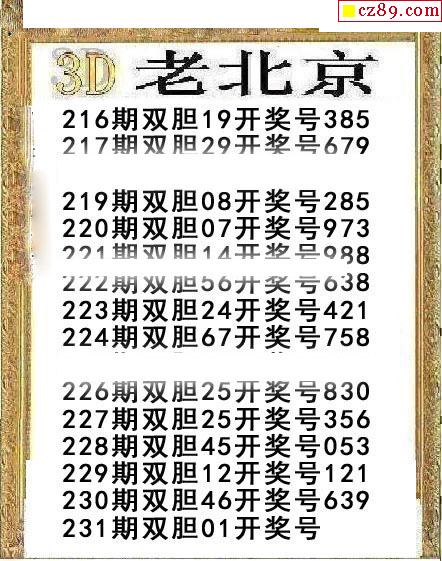 cz89.com
3D 老北京
216期双胆19开奖号385
217期双胆29开奖号679
219期双胆08开奖号285
220期双胆07开奖号973
221期双胆14开奖号988
222期双胆56开奖号638
223期双胆24开奖号421
224期双胆67开奖号758
226期双胆25开奖号830
227期双胆25开奖号356
228期双胆45开奖号053
229期双胆12开奖号121
230期双胆46开奖号639
231期双胆01开奖号